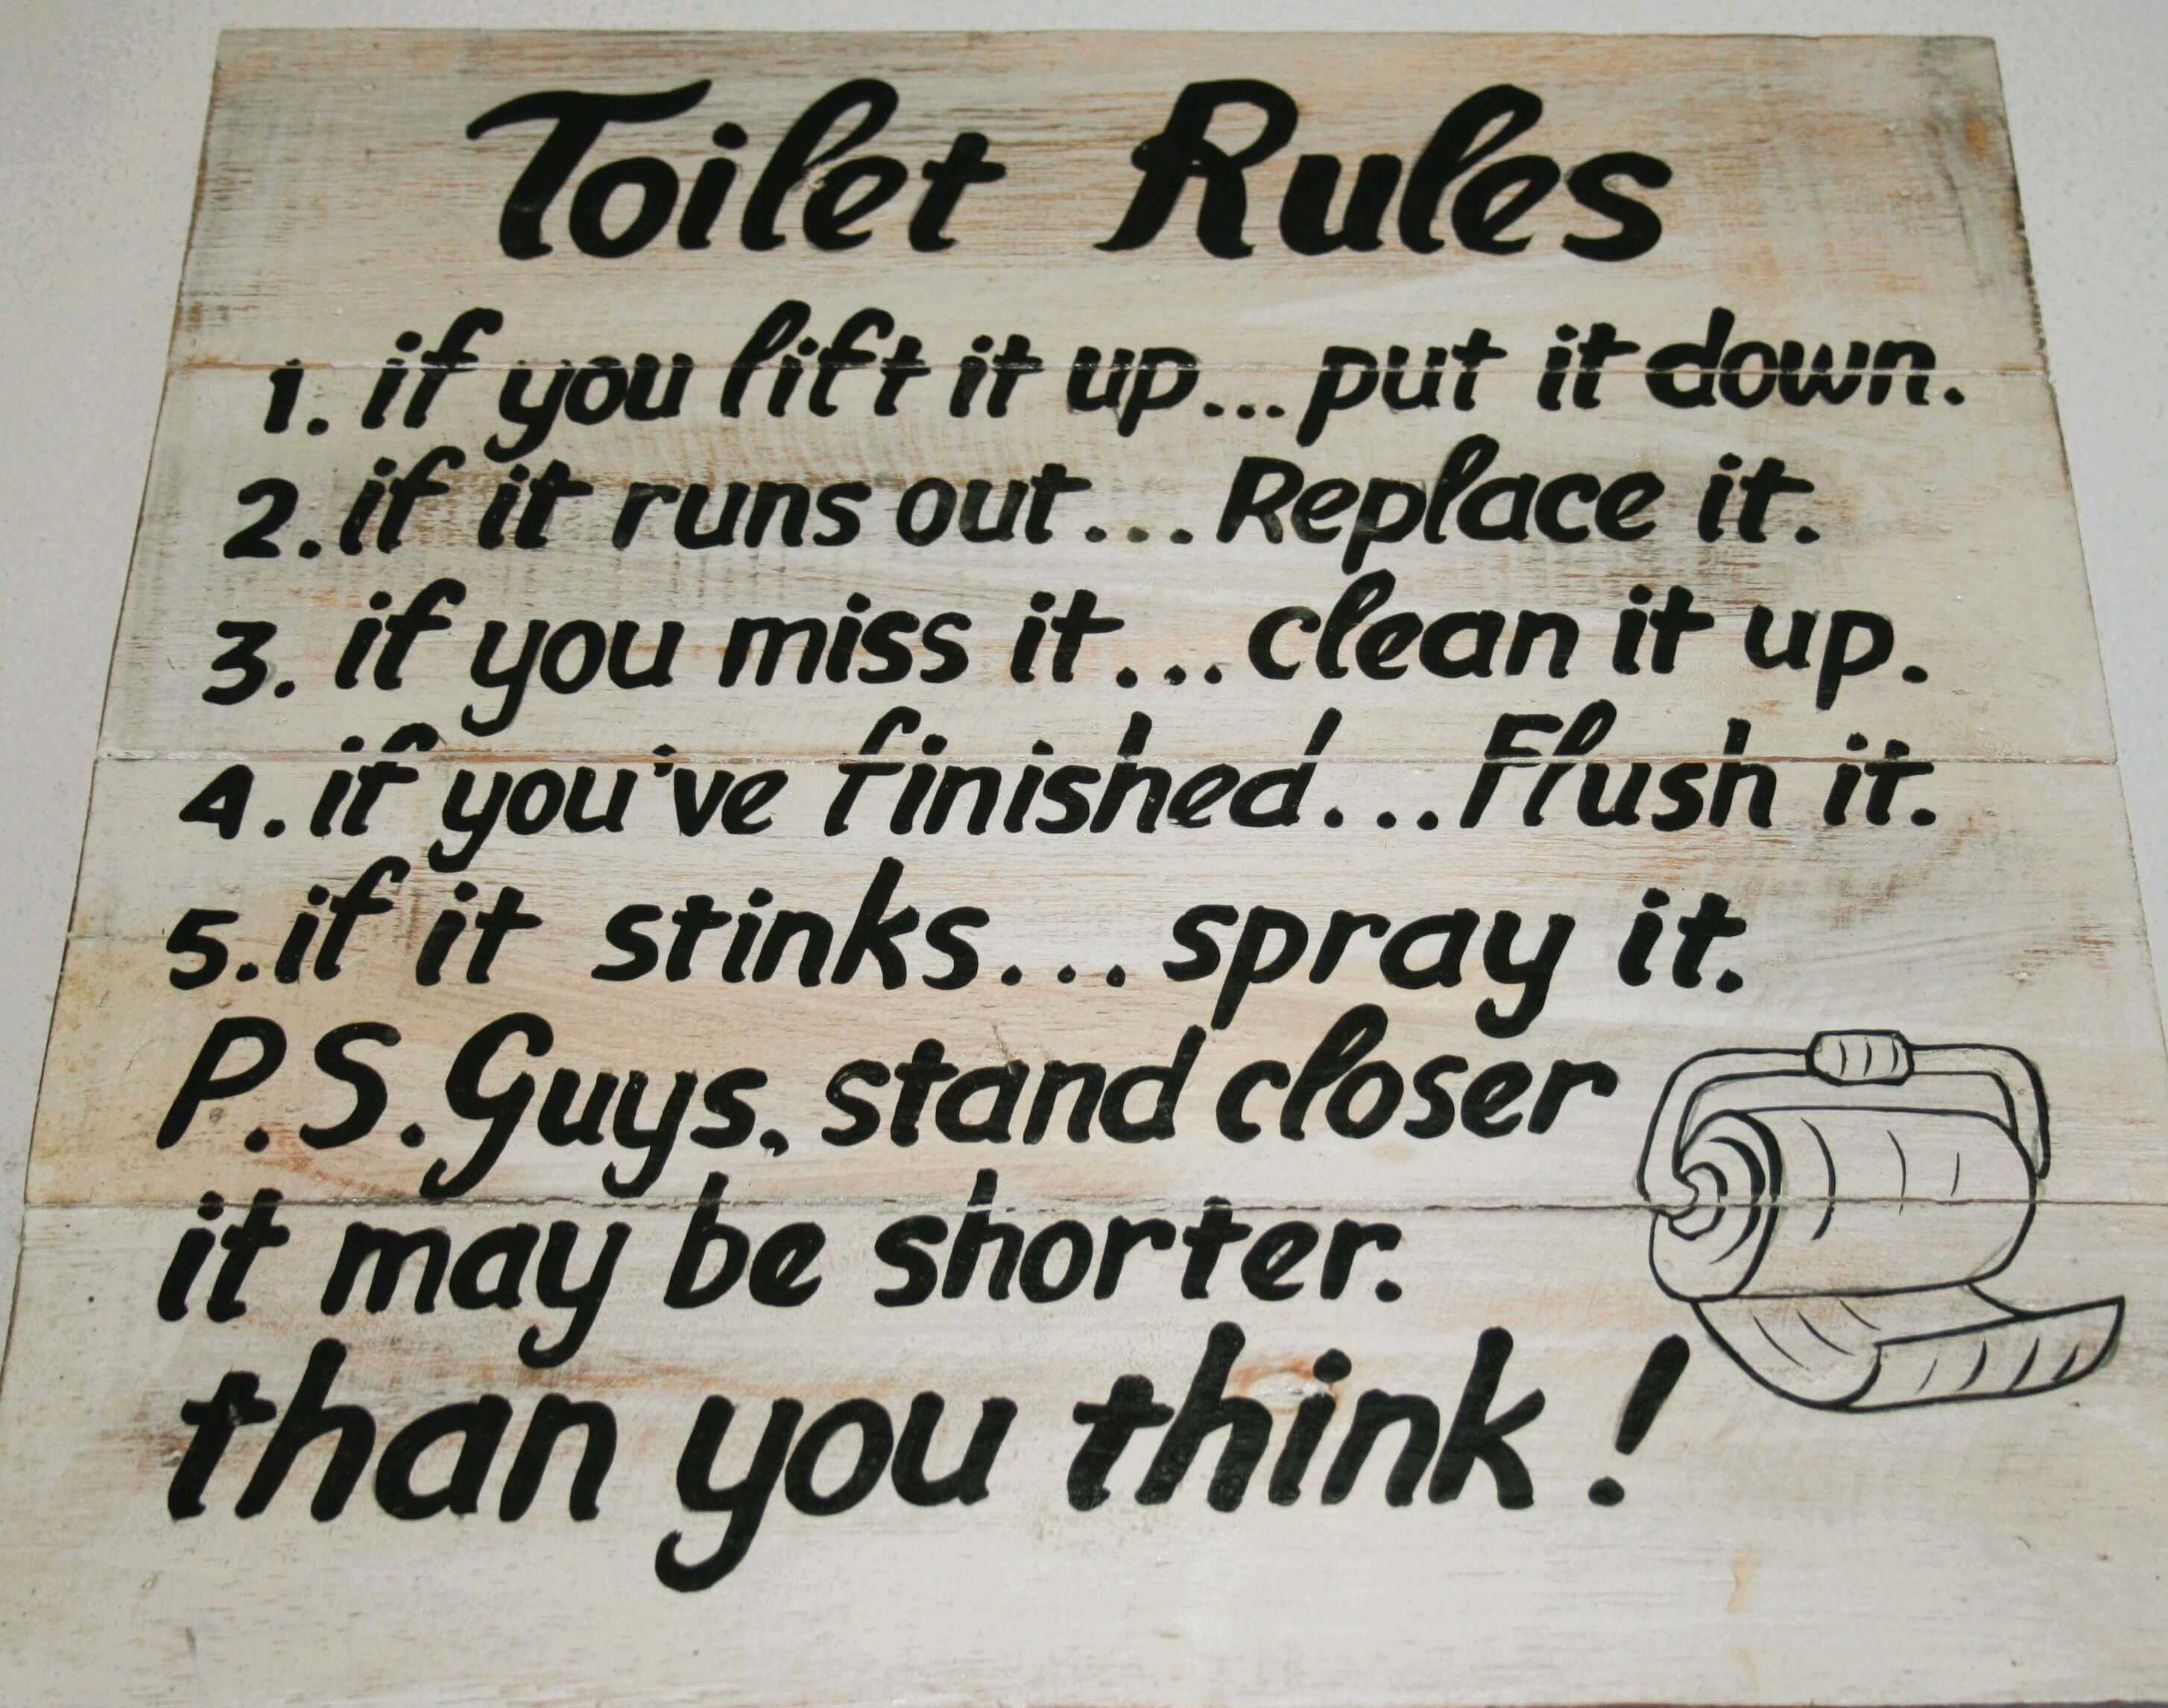 Toilet Rules
1. if you lift it up...put it down.
2. if it runs out...Replace it.
3. if you miss it...clean it up.
4. if you've finished...Flush it.
5. if it stinks...spray it.
P.S. Guys, stand closer
it may be shorter.
than you think!